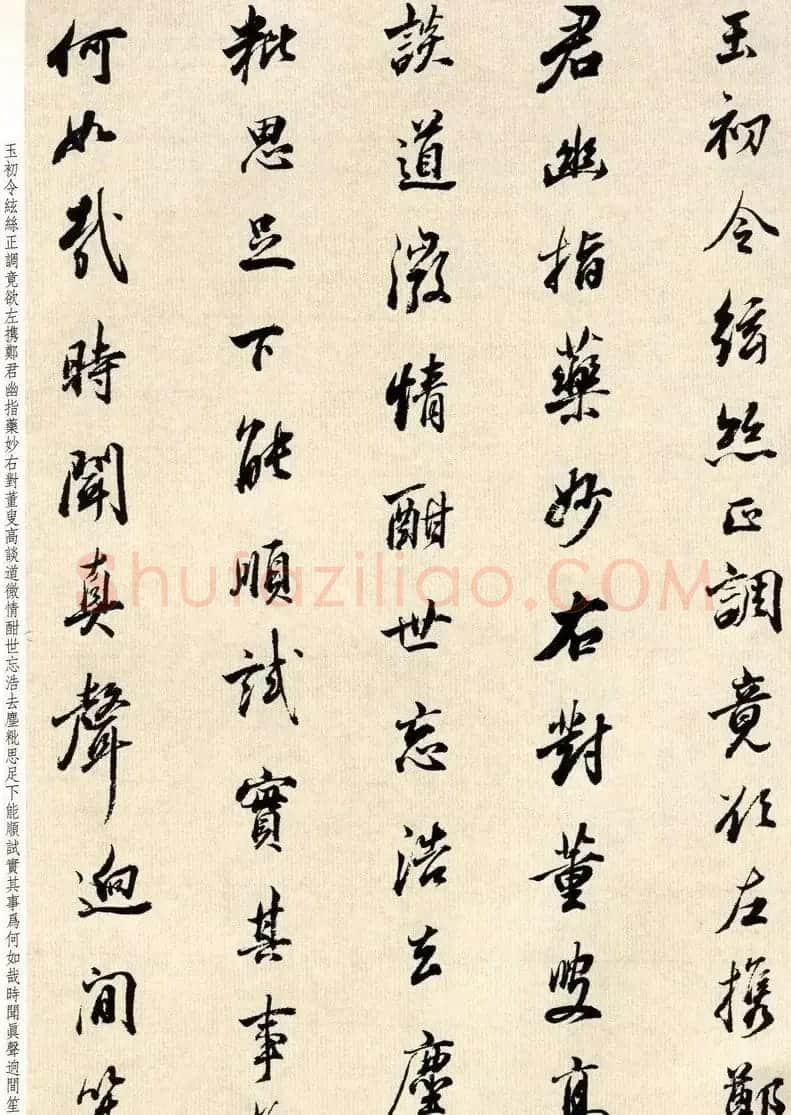 玉初令絃絲正調竟欲左携鄭
君幽指藥妙右對董叟高
談道微情酣世忘浩去塵
粃思足下能順試實其事爲
何如哉時聞眞聲迥間笙
玉初令絃絲正調竟欲左携鄭君幽指藥妙右對董叟高談道微情酣世忘浩去塵粃思足下能順試實其事爲何如哉時聞眞聲迥間笙
Shufaziliao.COM